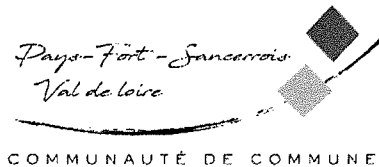 Pays-Fort-Sancerrois
Val de loire
COMMUNAUTÉ DE COMMUNE